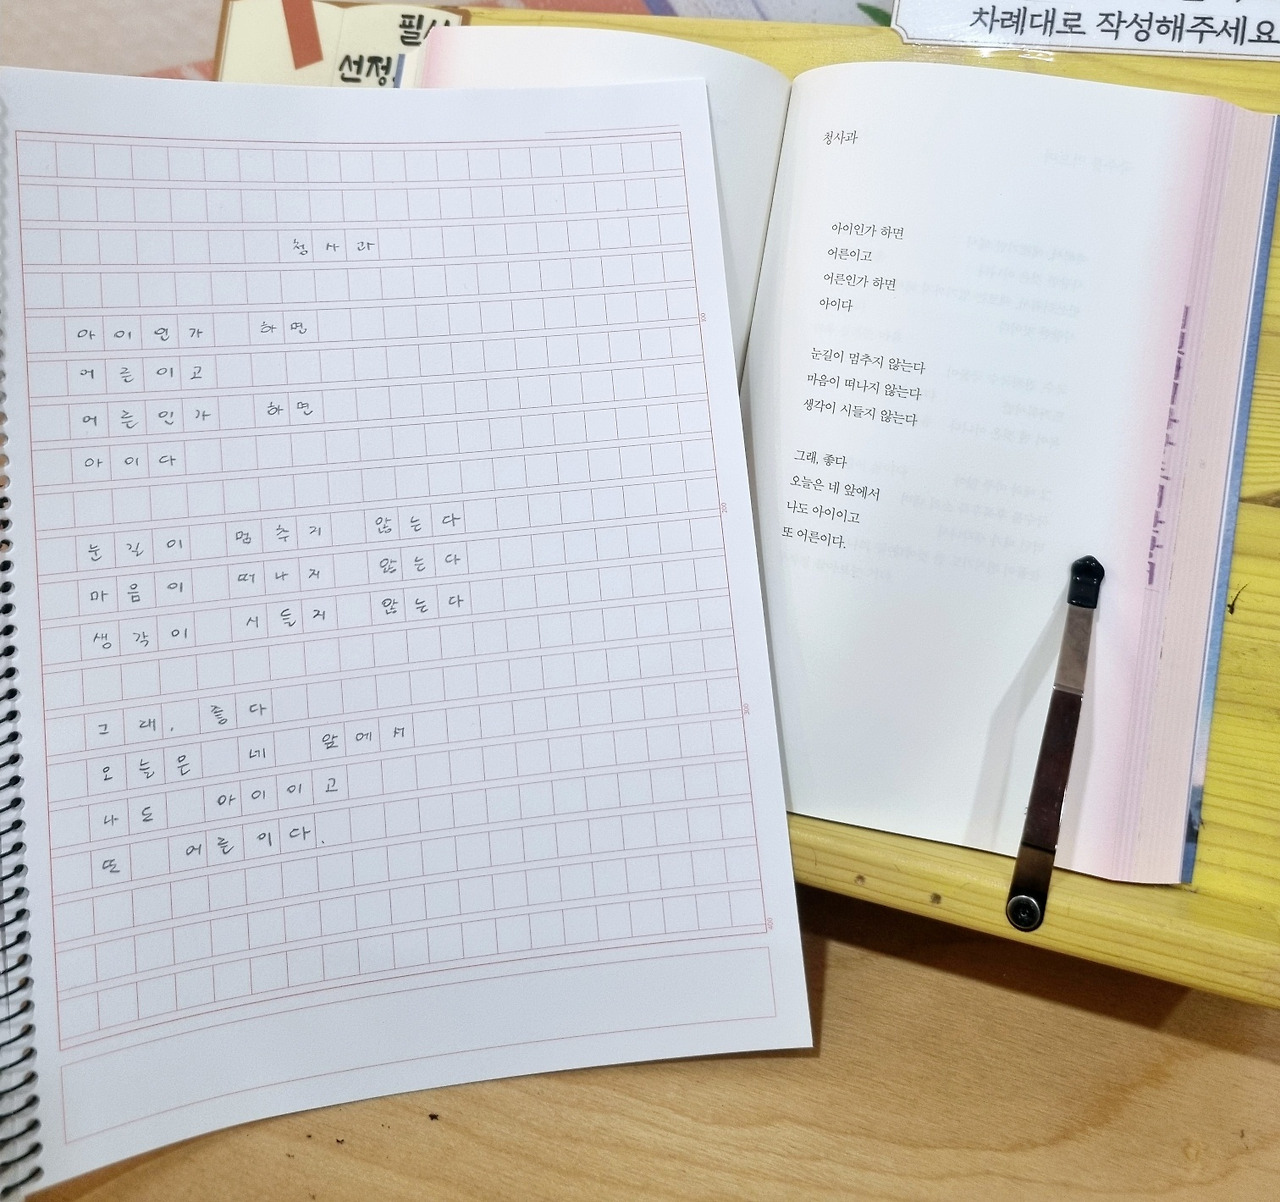 선정
차례대로 작성해주세요
청사과
아이인가 하면
어른이고
어른인가 하면
아이다
눈길이 멈추지 않는다
마음이 떠나지 않는다
생각이 시들지 않는다
그래, 좋다
오늘은 네 앞에서
나도 아이이고
또 어른이다.
100
200
300
400
청사과
아이인가 하면
어른이고
어른인가 하면
아이다
눈길이 멈추지 않는다
마음이 떠나지 않는다
생각이 시들지 않는다
그래, 좋다
오늘은 네 앞에서
나도 아이이고
또 어른이다.